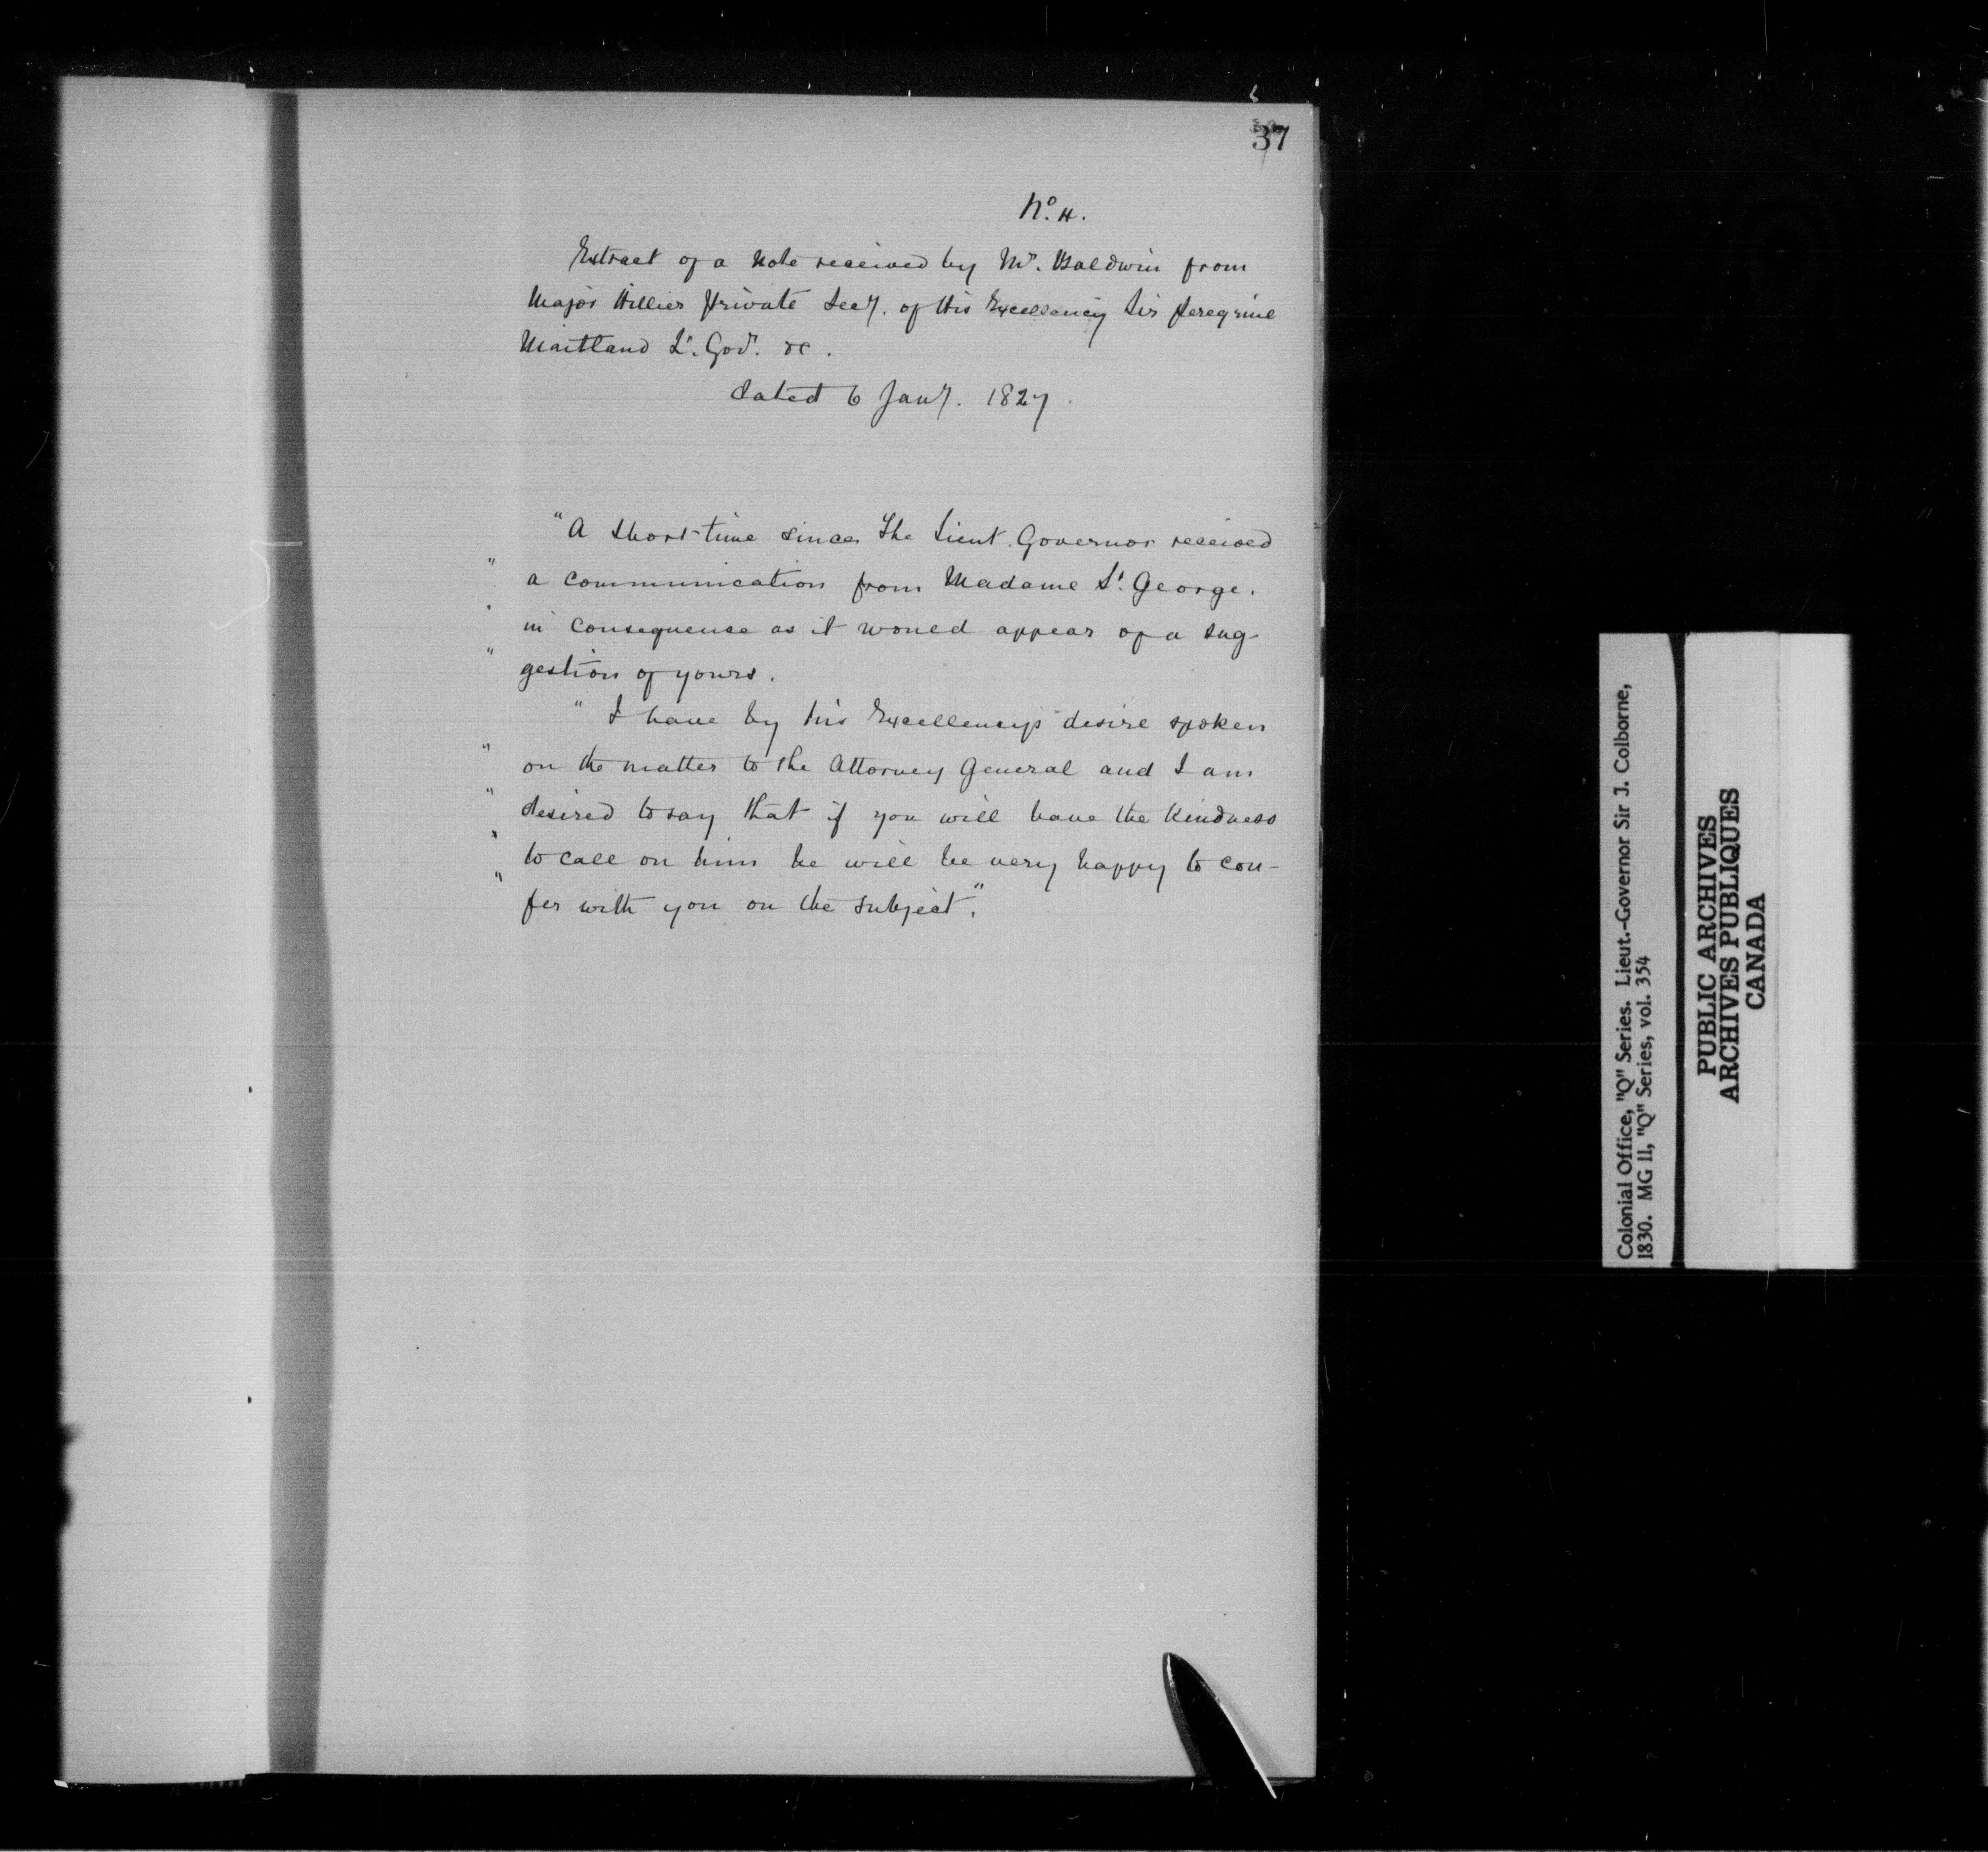 37
No. 4.
Extract of a Note received by Mr. Baldwin from
Major Hillier Private Secy. of His Excellency Sir Peregrine
Maitland Lt. Govr. &c.
dated 6 Jany. 1827.
"A short time since The Lieut. Governor received
" a communication from Madame St. George.
" in consequence as it would appear of a sug-
" gestion of yours.
" I have by his Excellency's desire spoken
" on the matter to the Attorney General and I am
" desired to say that if you will have the kindness
" to call on him he will be very happy to con-
" fer with you on the subject."
Colonial Office, "Q" Series. Lieut.-Governor Sir J. Colborne,
1830. MG 11, "Q" Series, vol. 354
PUBLIC ARCHIVES
ARCHIVES PUBLIQUES
CANADA